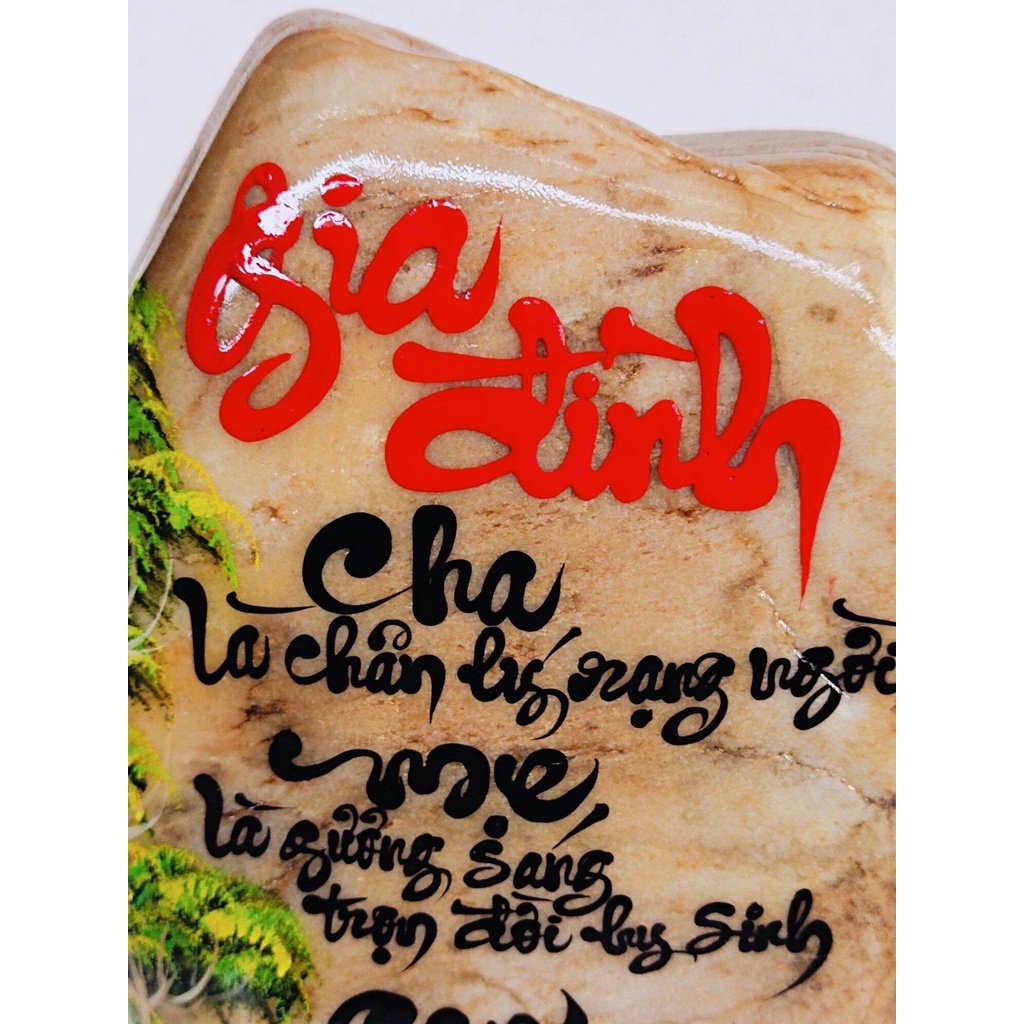 Gia
đình
Cha
là chân lý rạng ngời
mẹ
là gương sáng
trọn đời hy sinh